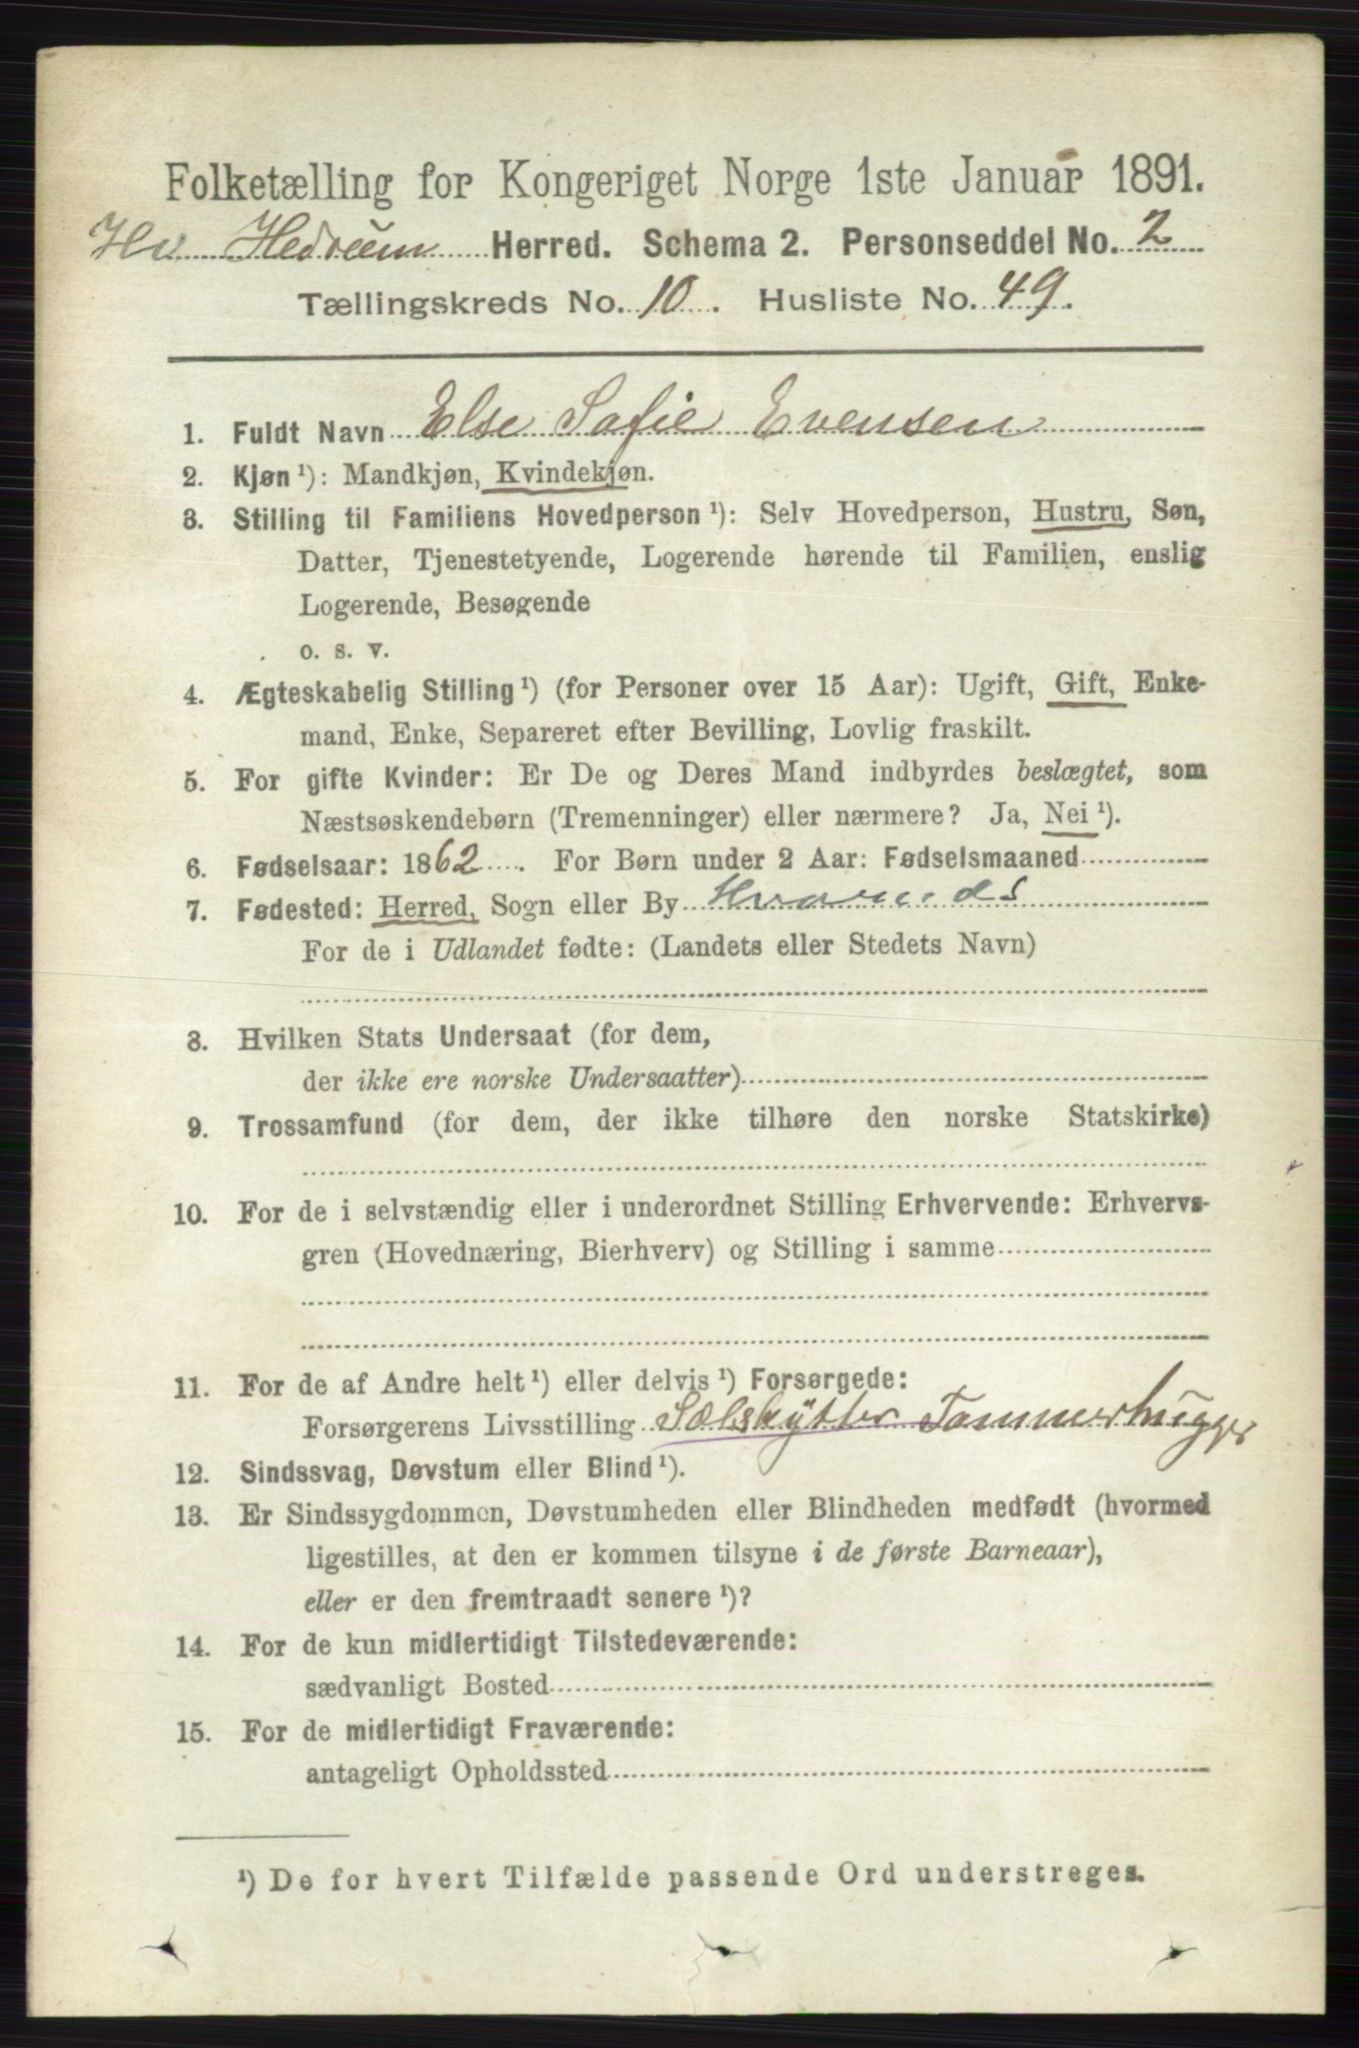 Folketælling for Kongeriget Norge 1ste Januar 1891.
Hv Hedrum Herred. Schema 2. Personseddel No. 2
Tællingskreds No. 10. Husliste No. 49.
1. Fuldt Navn Else Sofie Evensen
2. Kjøn ¹): Mandkjøn, Kvindekjøn.
3. Stilling til Familiens Hovedperson ¹): Selv Hovedperson, Hustru, Søn,
Datter, Tjenestetyende, Logerende hørende til Familien, enslig
Logerende, Besøgende
o. s. v.
4. Ægteskabelig Stilling ¹) (for Personer over 15 Aar): Ugift, Gift, Enke-
mand, Enke, Separeret efter Bevilling, Lovlig fraskilt.
5. For gifte Kvinder: Er De og Deres Mand indbyrdes beslægtet, som
Næstsøskendebørn (Tremenninger) eller nærmere? Ja, Nei ¹).
6. Fødselsaar: 1862. For Børn under 2 Aar: Fødselsmaaned
7. Fødested: Herred, Sogn eller By Hvarnds
For de i Udlandet fødte: (Landets eller Stedets Navn)
8. Hvilken Stats Undersaat (for dem,
der ikke ere norske Undersaatter)
9. Trossamfund (for dem, der ikke tilhøre den norske Statskirke)
10. For de i selvstændig eller i underordnet Stilling Erhvervende: Erhvervs-
gren (Hovednæring, Bierhverv) og Stilling i samme
11. For de af Andre helt ¹) eller delvis ¹) Forsørgede:
Forsørgerens Livsstilling Sælskytter Tømmerhugger
12. Sindssvag, Døvstum eller Blind ¹).
13. Er Sindssygdommen, Døvstumheden eller Blindheden medfødt (hvormed
ligestilles, at den er kommen tilsyne i de første Barneaar),
eller er den fremtraadt senere ¹)?
14. For de kun midlertidigt Tilstedeværende:
sædvanligt Bosted
15. For de midlertidigt Fraværende:
antageligt Opholdssted
¹) De for hvert Tilfælde passende Ord understreges.